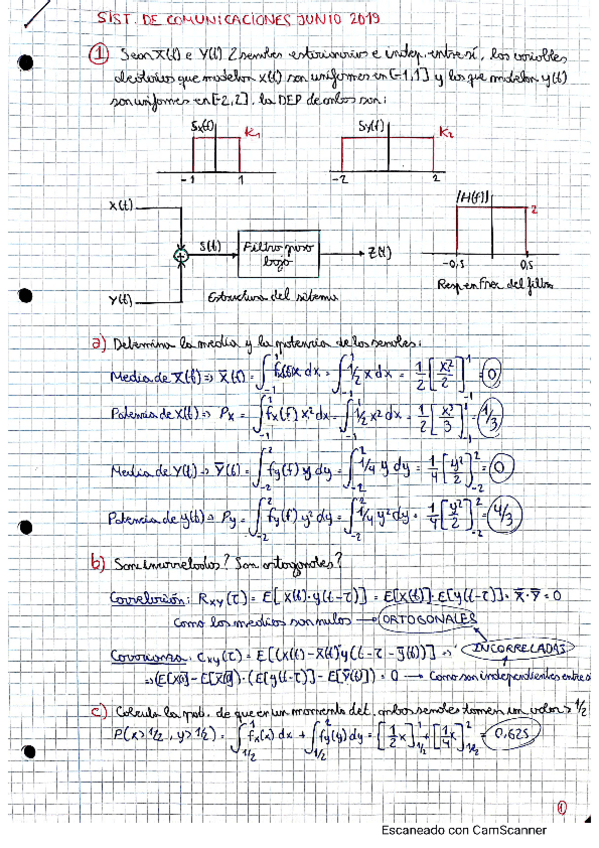 SIST. DE COMUNICACIONES JUNIO 2019
① Sean X(t) e Y(t) 2 señales estacionarias e indep. entre sí, las variables
aleatorias que modelan x(t) son uniformes en [-1,1] y las que modelan y(t)
son uniformes en [-2,2]. la DEP de ambas son:
Sx(t) K1 Sy(f) K2
-1 1 -2 2
X(t) |H(f)| 2
S(t) Filtro paso bajo Z(t)
-0,5 0,5
Y(t) Estructura del sistema Resp en frec del filtro
a) Determina la media y la potencia de las señales:
Media de X(t) => X̄(t) = ∫₋₁¹ fx(x)x dx = ∫₋₁¹ 1/2 x dx = 1/2 [x²/2]₋₁¹ = 0
Potencia de x(t) => Px = ∫₋₁¹ fx(f) x² dx = ∫₋₁¹ 1/2 x² dx = 1/2 [x³/3]₋₁¹ = 1/3
Media de Y(t) => Ȳ(t) = ∫₋₂² fy(f) y dy = ∫₋₂² 1/4 y dy = 1/4 [y²/2]₋₂² = 0
Potencia de y(t) => Py = ∫₋₂² fy(f) y² dy = ∫₋₂² 1/4 y² dy = 1/4 [y²/2]₋₂² = 4/3
b) Son incorreladas? Son ortogonales?
Correlación: Rxy(τ) = E[x(t)·y(t-τ)] = E[x(t)]·E[y(t-τ)] = X̄·Ȳ = 0
Como las medias son nulas → ORTOGONALES
Covarianza: Cxy(τ) = E[(x(t)-x̄(t))·y(t-τ-ȳ(t))] => INCORRELADAS
=> (E[x(t)]-E[x̄(t)])·(E[y(t-τ)]-E[ȳ(t)]) = 0 → Como son independientes entre sí
c) Calcula la prob. de que en un momento det. ambas señales tomen un valor > 1/2
P(x>1/2, y>1/2) = ∫₁/₂¹ fx(x) dx + ∫₁/₂² fy(y) dy = [1/2 x]₁/₂¹ + [1/4 x]₁/₂² = 0,625
①
Escaneado con CamScanner